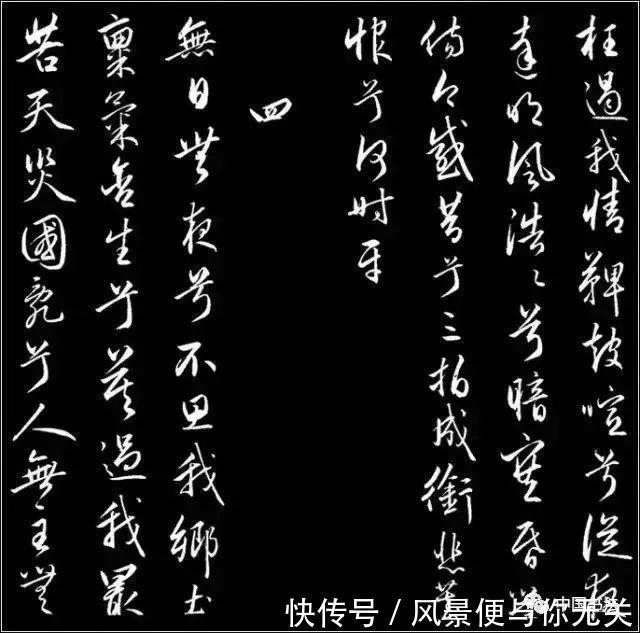 枉遏我情鞞鼓喧兮從夜
達明風浩〻兮暗塞昏
傷今感昔兮三拍成銜悲蓄
恨兮何時平
四
無日無夜兮不思我鄉土
稟氣含生兮莫過我最
苦天災國亂兮人無主
快传号 / 风景便与你无关